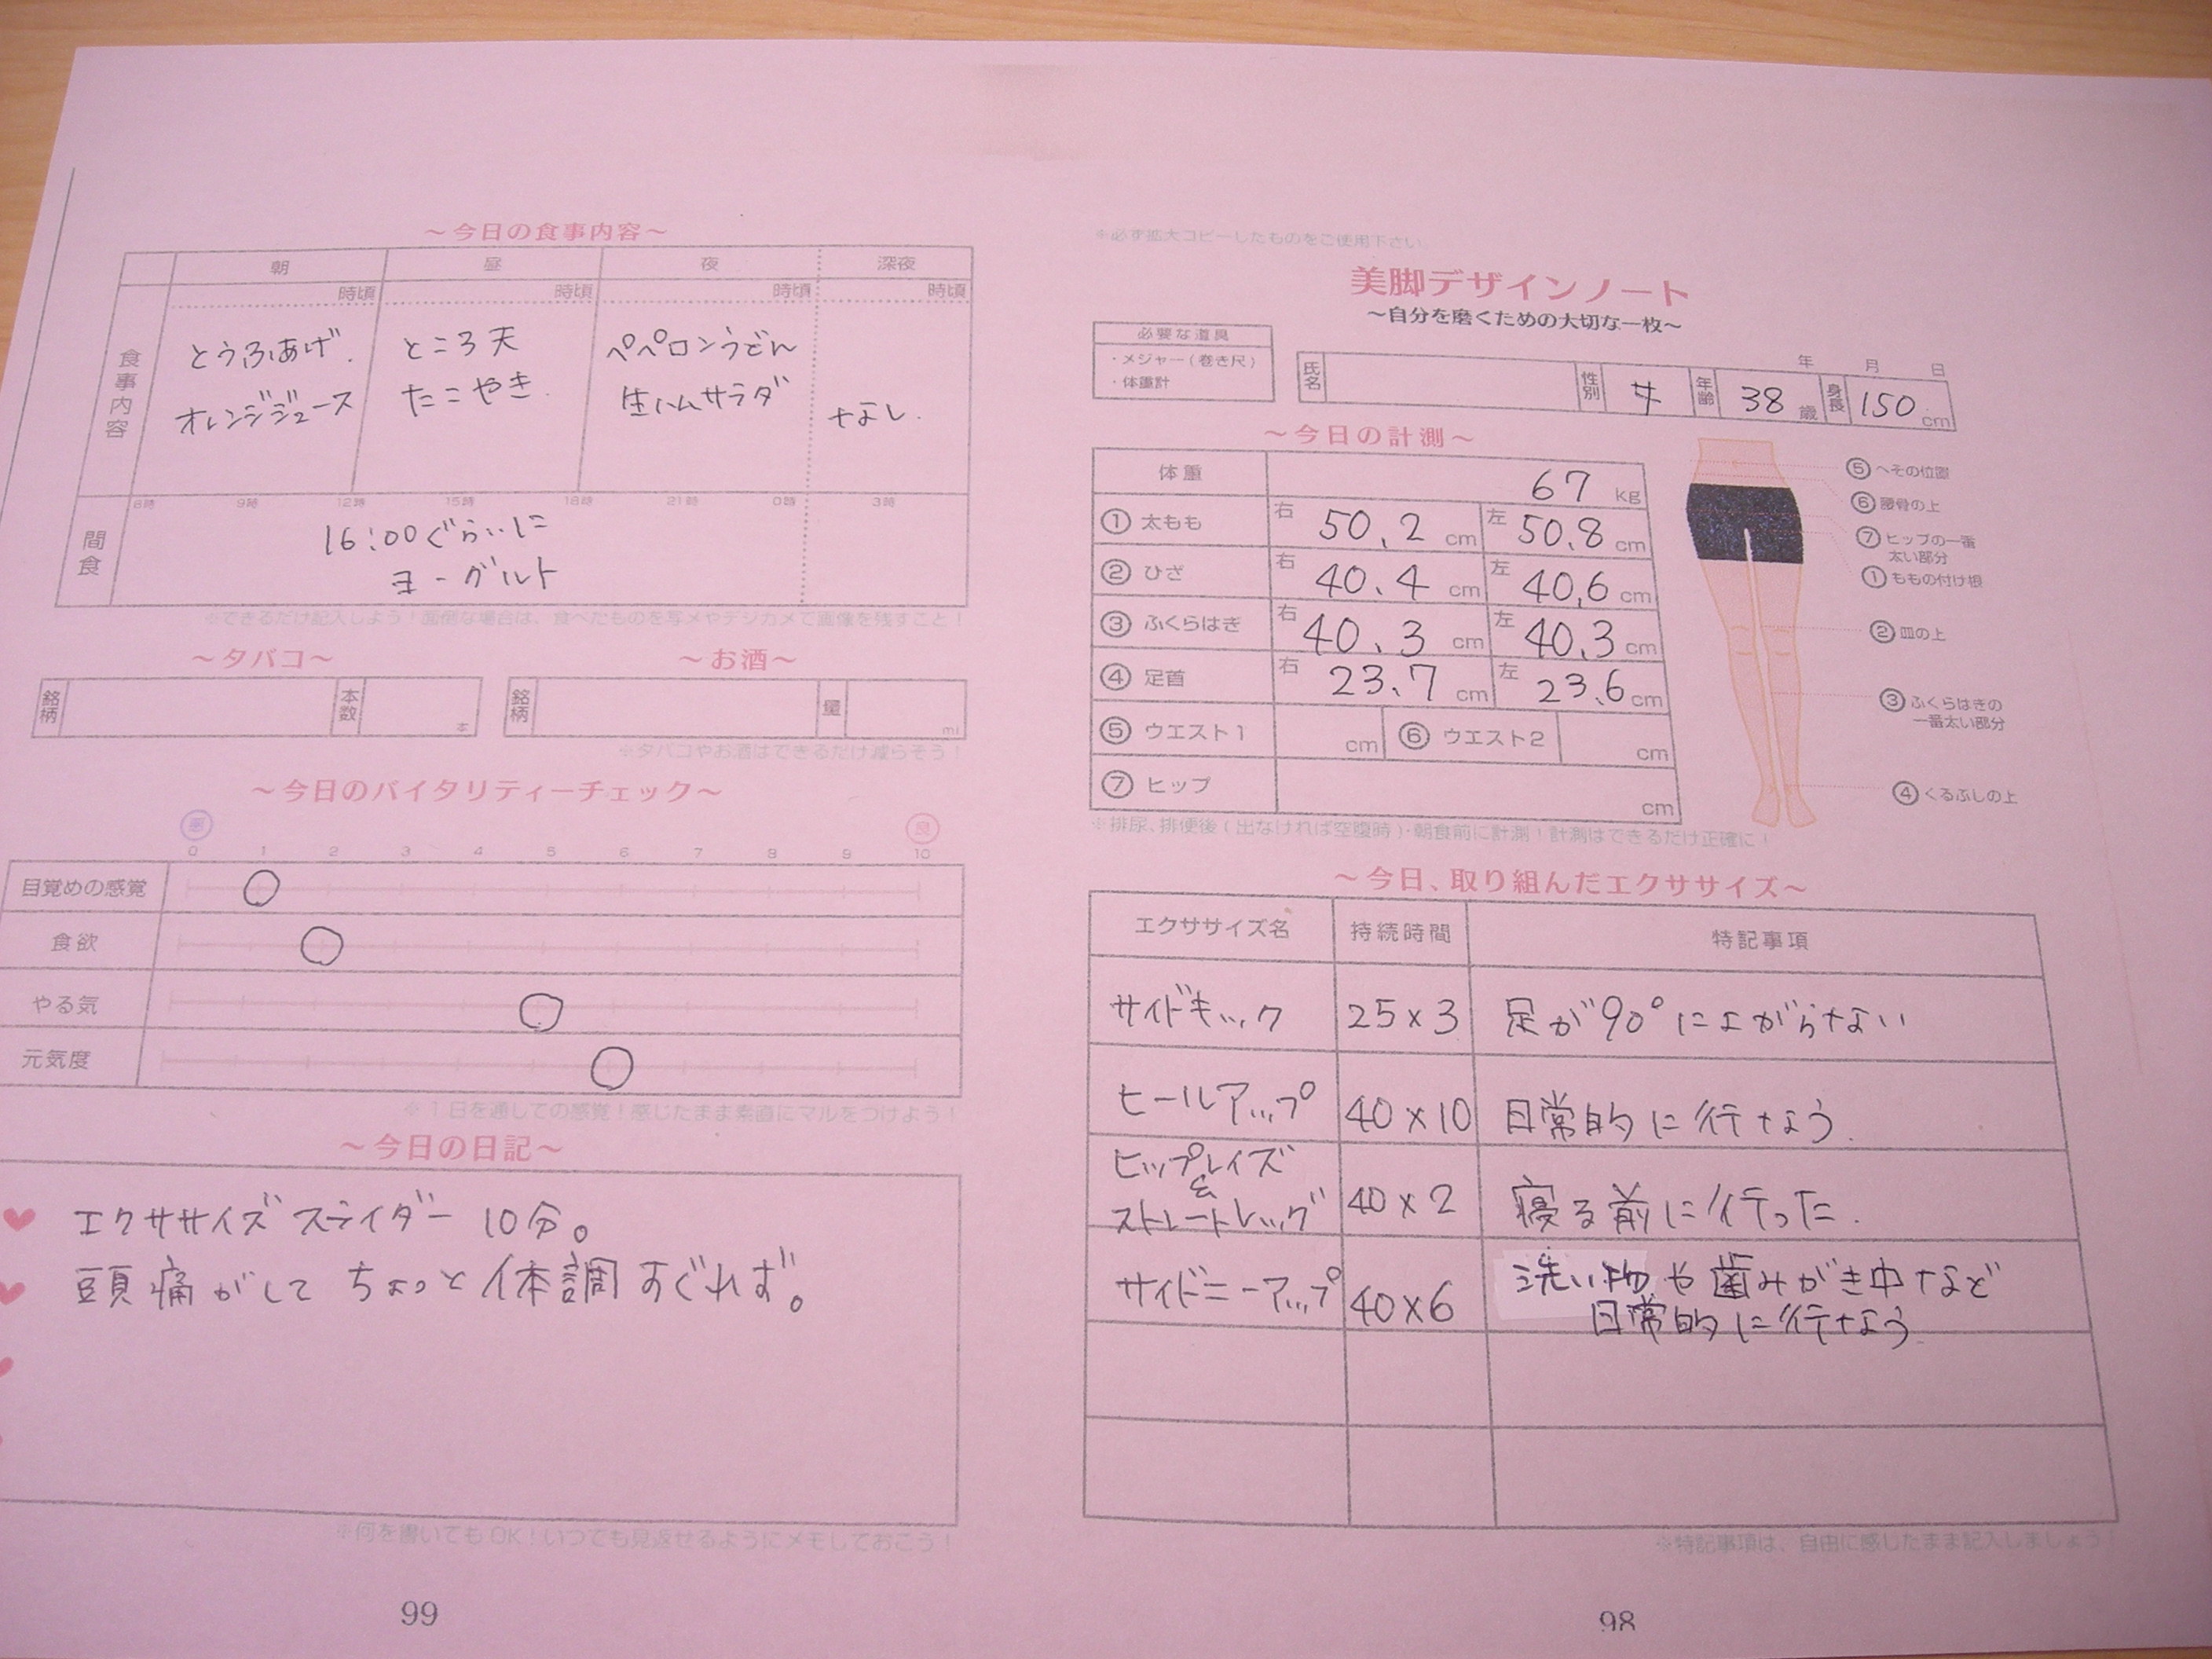 ～今日の食事内容～
朝 昼 夜 深夜
時頃 時頃 時頃 時頃
食事内容
とうふあげ.
オレンジジュース
ところ天
たこやき.
ペペロンうどん
生ハムサラダ
なし.
6時 9時 12時 15時 18時 21時 0時 3時
間食
16:00ぐらいに
ヨーグルト
※できるだけ記入しよう！面倒な場合は、食べたものを写メやデジカメで画像を残すこと！
～タバコ～
銘柄 本数 本
～お酒～
銘柄 量 ml
※タバコやお酒はできるだけ減らそう！
～今日のバイタリティーチェック～
悪 良
0 1 2 3 4 5 6 7 8 9 10
目覚めの感覚
食欲
やる気
元気度
※１日を通しての感覚！感じたまま素直にマルをつけよう！
～今日の日記～
エクササイズスライダー 10分。
頭痛がして ちょっと体調すぐれず。
※何を書いてもOK！いつでも見返せるようにメモしておこう！
99
※必ず拡大コピーしたものをご使用下さい
美脚デザインノート
～自分を磨くための大切な一枚～
必要な道具
・メジャー(巻き尺)
・体重計
年 月 日
氏名 性別 女 年齢 38 歳 身長 150 cm
～今日の計測～
体重 67 kg
① 太もも 右 50.2 cm 左 50.8 cm
② ひざ 右 40.4 cm 左 40.6 cm
③ ふくらはぎ 右 40.3 cm 左 40.3 cm
④ 足首 右 23.7 cm 左 23.6 cm
⑤ ウエスト1 cm ⑥ ウエスト2 cm
⑦ ヒップ cm
⑤ へその位置
⑥ 腰骨の上
⑦ ヒップの一番
太い部分
① ももの付け根
② 皿の上
③ ふくらはぎの
一番太い部分
④ くるぶしの上
※排尿、排便後(出なければ空腹時)・朝食前に計測！計測はできるだけ正確に！
～今日、取り組んだエクササイズ～
エクササイズ名 持続時間 特記事項
サイドキック 25×3 足が90°に上がらない
ヒールアップ 40×10 日常的に行なう.
ヒップレイズ
&
ストレートレッグ
40×2 寝る前に行った.
サイドニーアップ 40×6
洗い物や歯みがき中など
日常的に行なう
※特記事項は、自由に感じたまま記入しましょう！
98